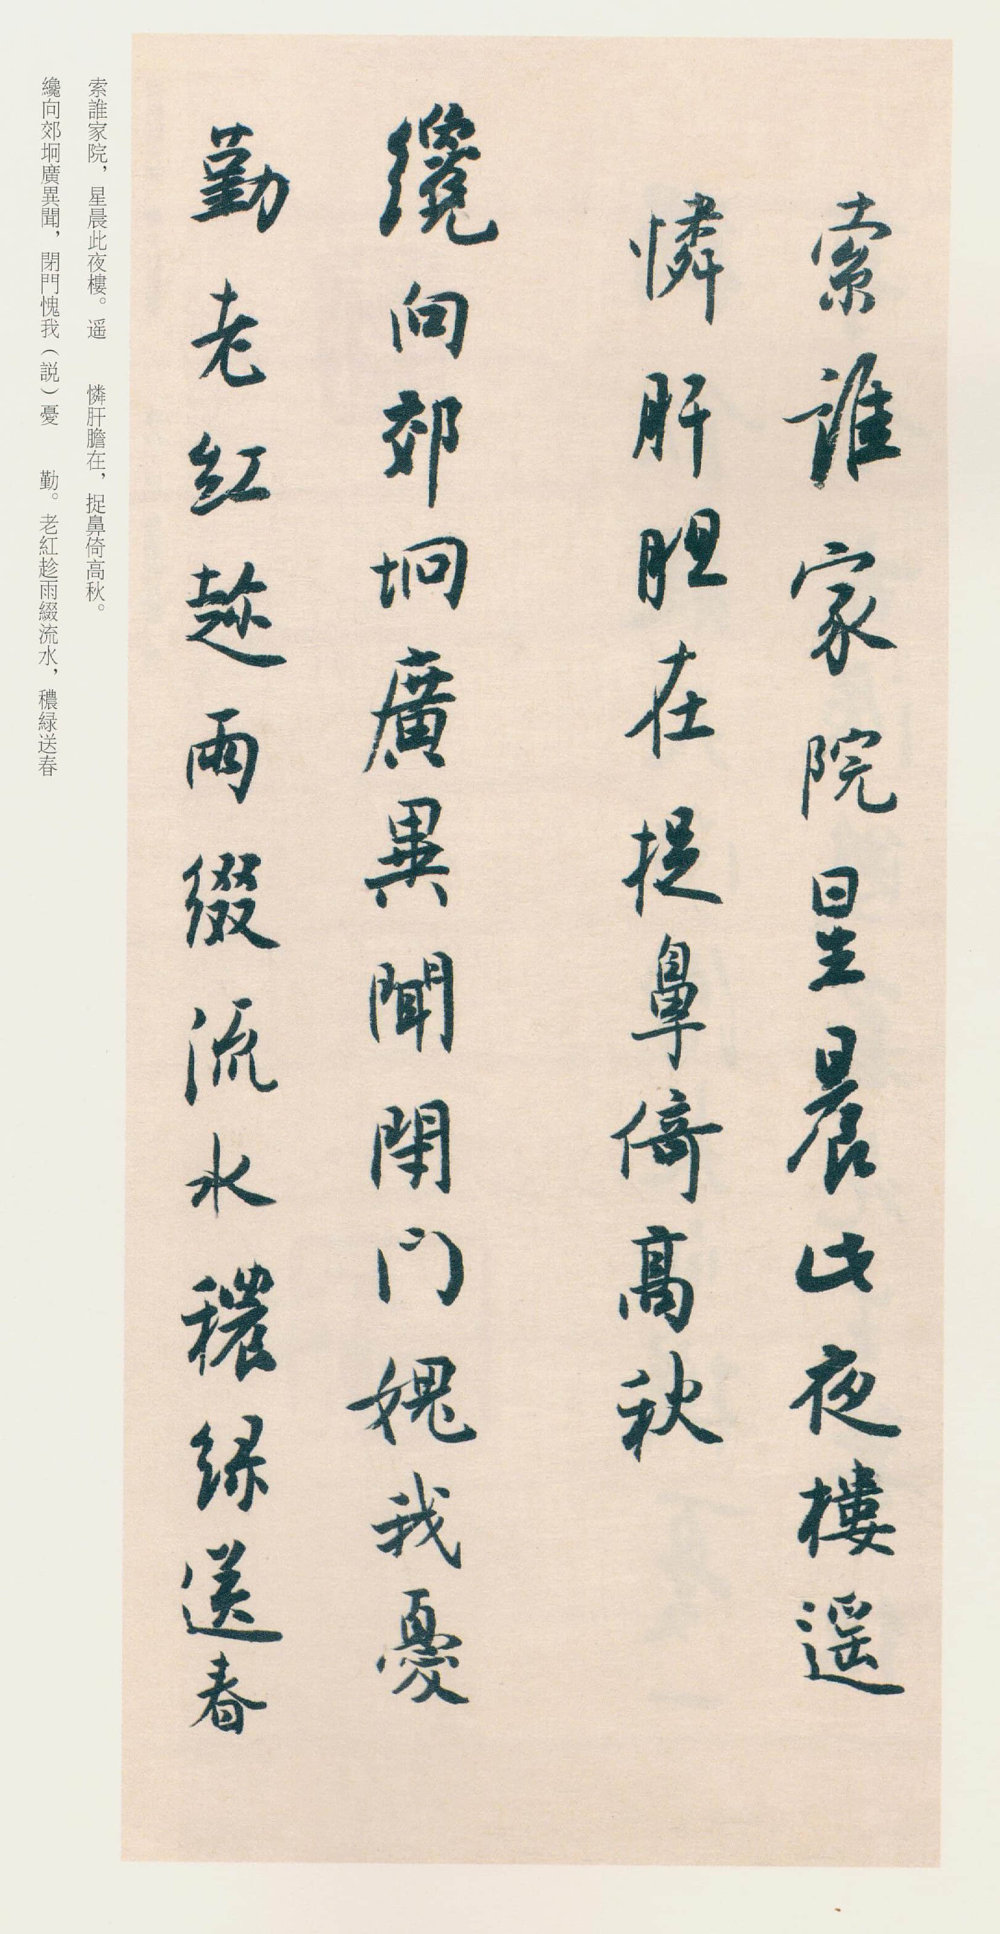 索誰家院星晨此夜樓遥
憐肝胆在捉鼻倚高秋
纔向郊坰廣異聞閉門愧我憂
勤老紅趁雨綴流水穠緑送春
索誰家院，星晨此夜樓。遥　憐肝膽在，捉鼻倚高秋。
纔向郊坰廣異聞，閉門愧我（説）憂　勤。老紅趁雨綴流水，穠緑送春